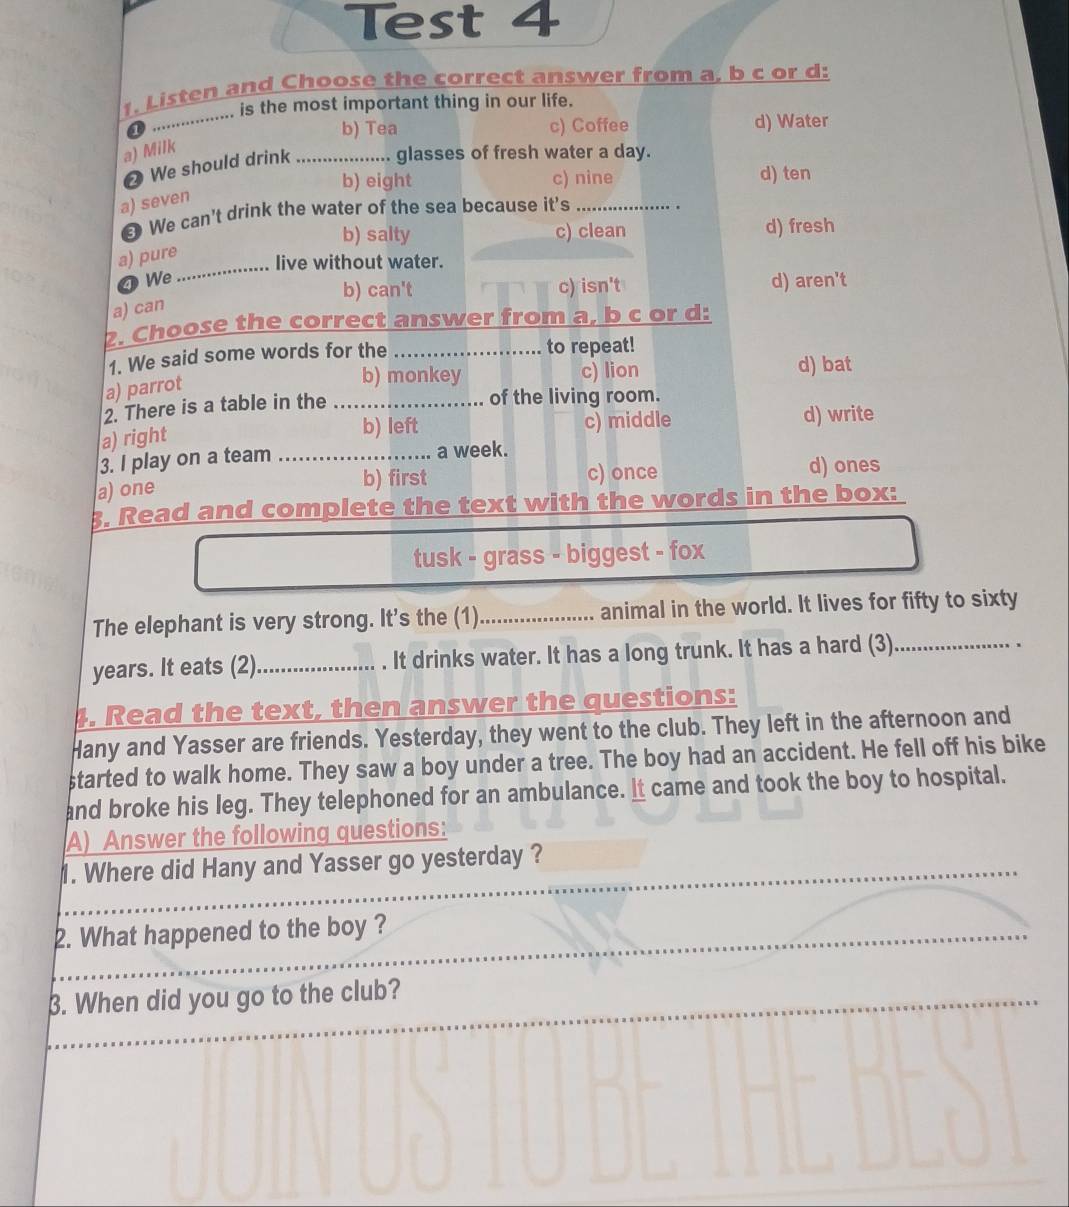 Test 4
1. Listen and Choose the correct answer from a, b c or d:
1 ................ is the most important thing in our life.
a) Milk b) Tea c) Coffee d) Water
2 We should drink .................. glasses of fresh water a day.
a) seven b) eight c) nine d) ten
3 We can't drink the water of the sea because it's .................. .
a) pure b) salty c) clean d) fresh
4 We .................. live without water.
a) can b) can't c) isn't d) aren't
2. Choose the correct answer from a, b c or d:
1. We said some words for the ...................... to repeat!
a) parrot b) monkey c) lion d) bat
2. There is a table in the ...................... of the living room.
a) right b) left c) middle d) write
3. I play on a team ...................... a week.
a) one b) first c) once d) ones
3. Read and complete the text with the words in the box:
tusk - grass - biggest - fox
The elephant is very strong. It's the (1).................... animal in the world. It lives for fifty to sixty
years. It eats (2).................... . It drinks water. It has a long trunk. It has a hard (3).................... .
4. Read the text, then answer the questions:
Hany and Yasser are friends. Yesterday, they went to the club. They left in the afternoon and
started to walk home. They saw a boy under a tree. The boy had an accident. He fell off his bike
and broke his leg. They telephoned for an ambulance. It came and took the boy to hospital.
A) Answer the following questions:
1. Where did Hany and Yasser go yesterday ?
2. What happened to the boy ?
3. When did you go to the club?
THE
MIRACLE
JOIN US TO BE THE BEST